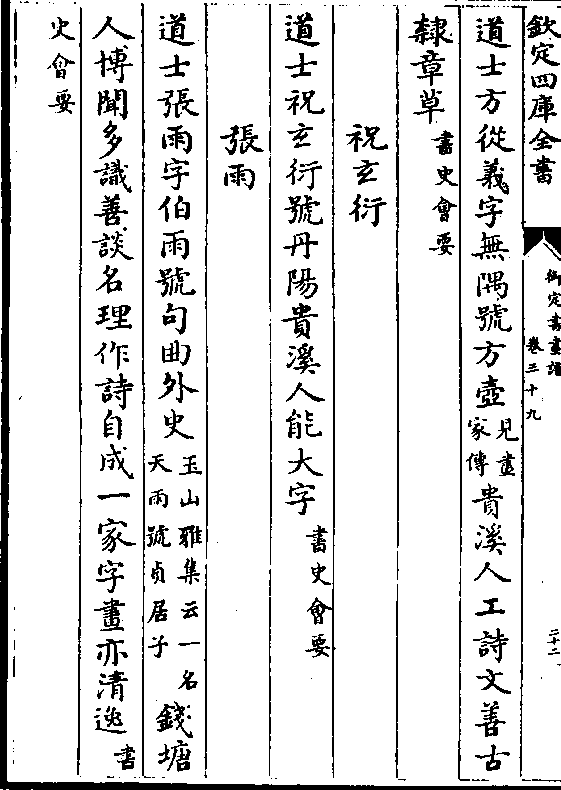 欽定四庫全書
御定書畫譜
卷三十九
二十二
道士方從義字無隅號方壺見畫家傳貴溪人工詩文善古
隸章草書史會要
祝玄衍
道士祝玄衍號丹陽貴溪人能大字書史會要
張雨
道士張雨字伯雨號句曲外史玉山雅集云一名天雨號貞居子錢塘
人博聞多識善談名理作詩自成一家字畫亦清逸書
史會要